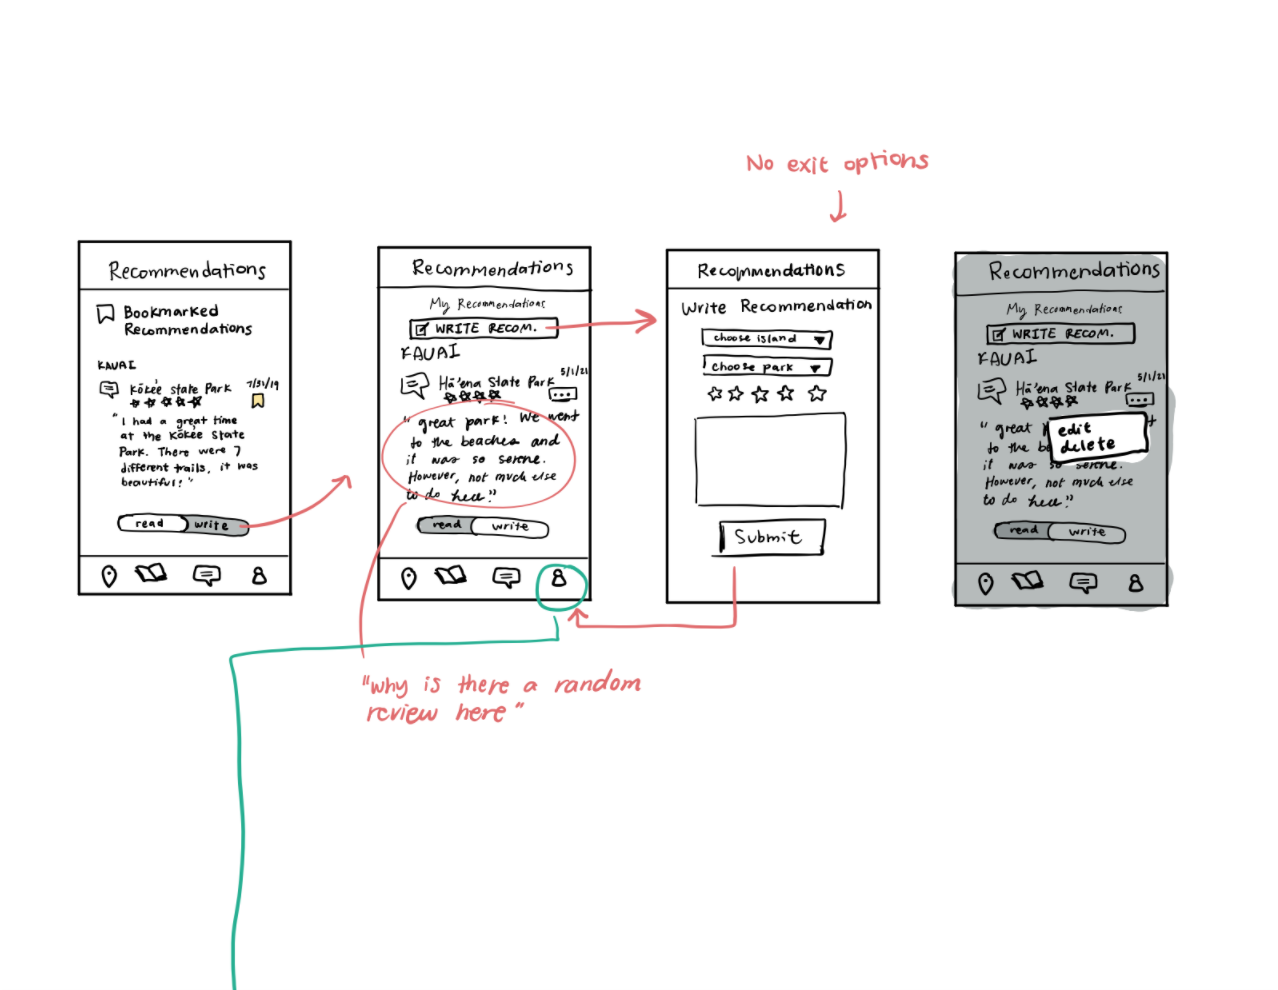 No exit options
Recommendations
Bookmarked
Recommendations
KAUAI
Kōkeé State Park
7/31/19
"I had a great time
at the Kōkeé State
Park. There were 7
different trails, it was
beautiful!"
read
write
Recommendations
My Recommendations
WRITE RECOM.
KAUAI
Hā'ena State Park
5/1/21
"great park! We went
to the beaches and
it was so serene.
However, not much else
to do here."
read
write
"why is there a random
review here"
Recommendations
Write Recommendation
choose island
choose park
Submit
Recommendations
My Recommendations
WRITE RECOM.
KAUAI
Hā'ena State Park
5/1/21
"great
edit
delete
to the be
it was so serene.
However, not much else
to do here."
read
write